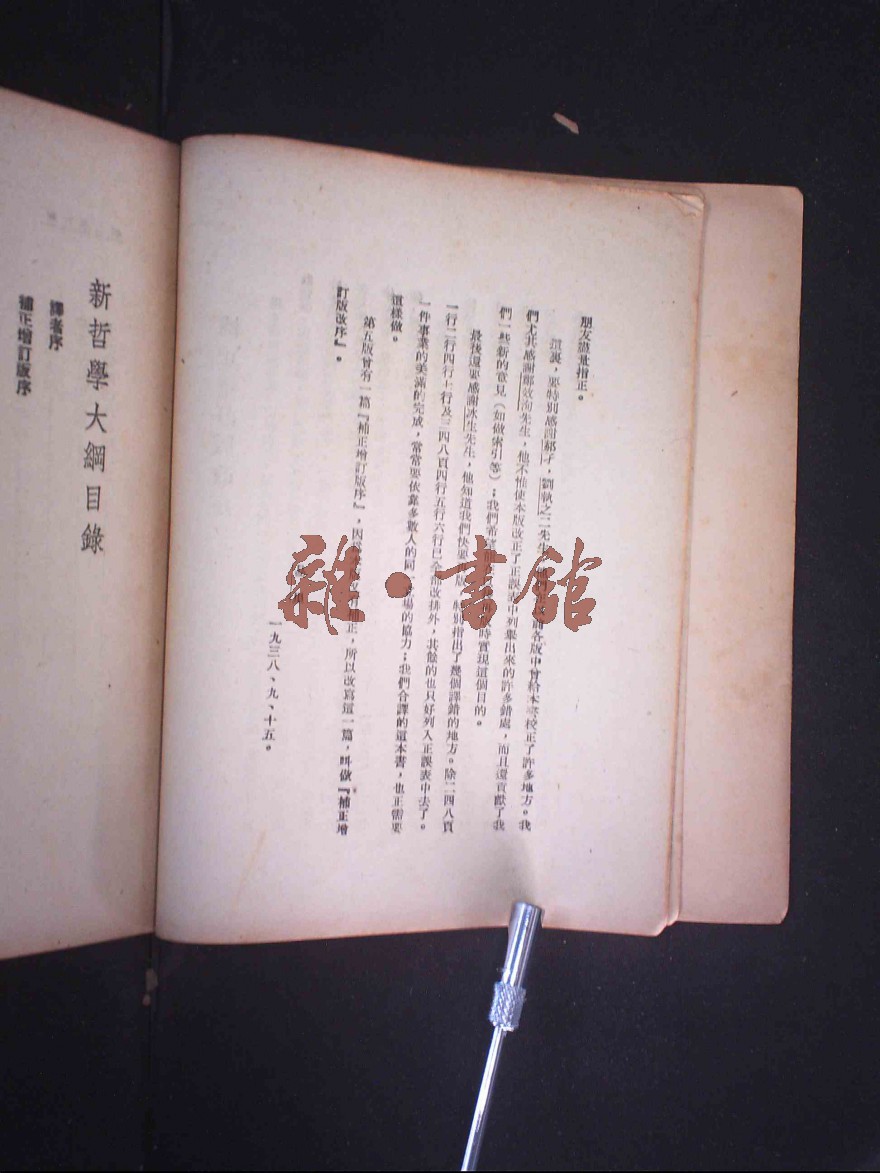 朋友儘量指正。
這裏，要特別感謝郝才，劉執之二先生，各版中曾給本書校正了許多地方。我
們尤其感謝鄭效洵先生，他不惟使本版改正了正誤表中列舉出來的許多錯處，而且還貢獻了我
們一些新的意見（如做索引等）；我們希時實現這個目的。
最後還要感謝冰生先生，他知道我們快要版，特別指出了幾個譯錯的地方。除二四八頁
一行二行四行七行及三四八頁四行五行六行已全部改排外，其餘的也只好列入正誤表中去了。
一件事業的美滿的完成，常常要依靠多數人的同場的協力；我們合譯的這本書，也正需要
這樣做。
第五版曾有一篇『補正增訂版序』，因正，所以改寫這一篇，叫做『補正增
訂版改序』。
一九三八、九、十五。
新哲學大綱目錄
譯者序
補正增訂版序
雜·書館